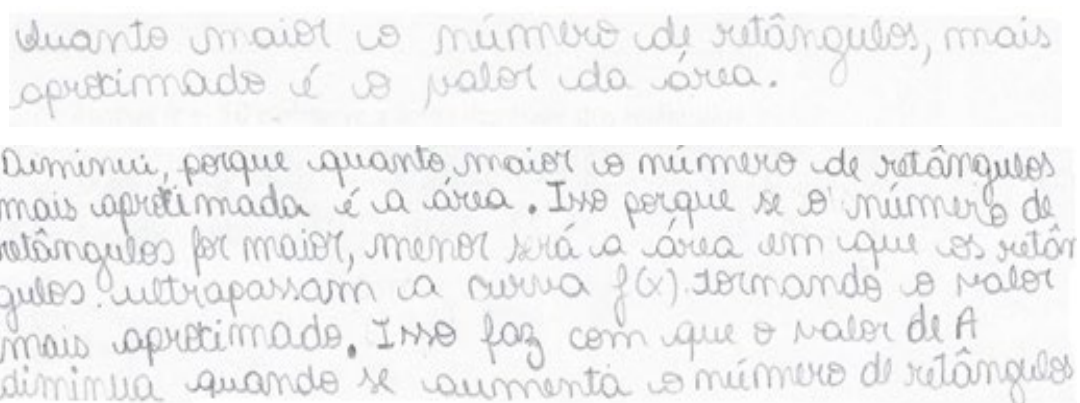 Quanto maior o número de retângulos, mais
aproximado é o valor da área.
Diminui, porque quanto maior o número de retângulos
mais aproximada é a área. Isso porque se o número de
retângulos for maior, menor será a área em que os retân
gulos ultrapassam a curva f(x) tornando o valor
mais aproximado. Isso faz com que o valor de A
diminua quando se aumenta o número de retângulos